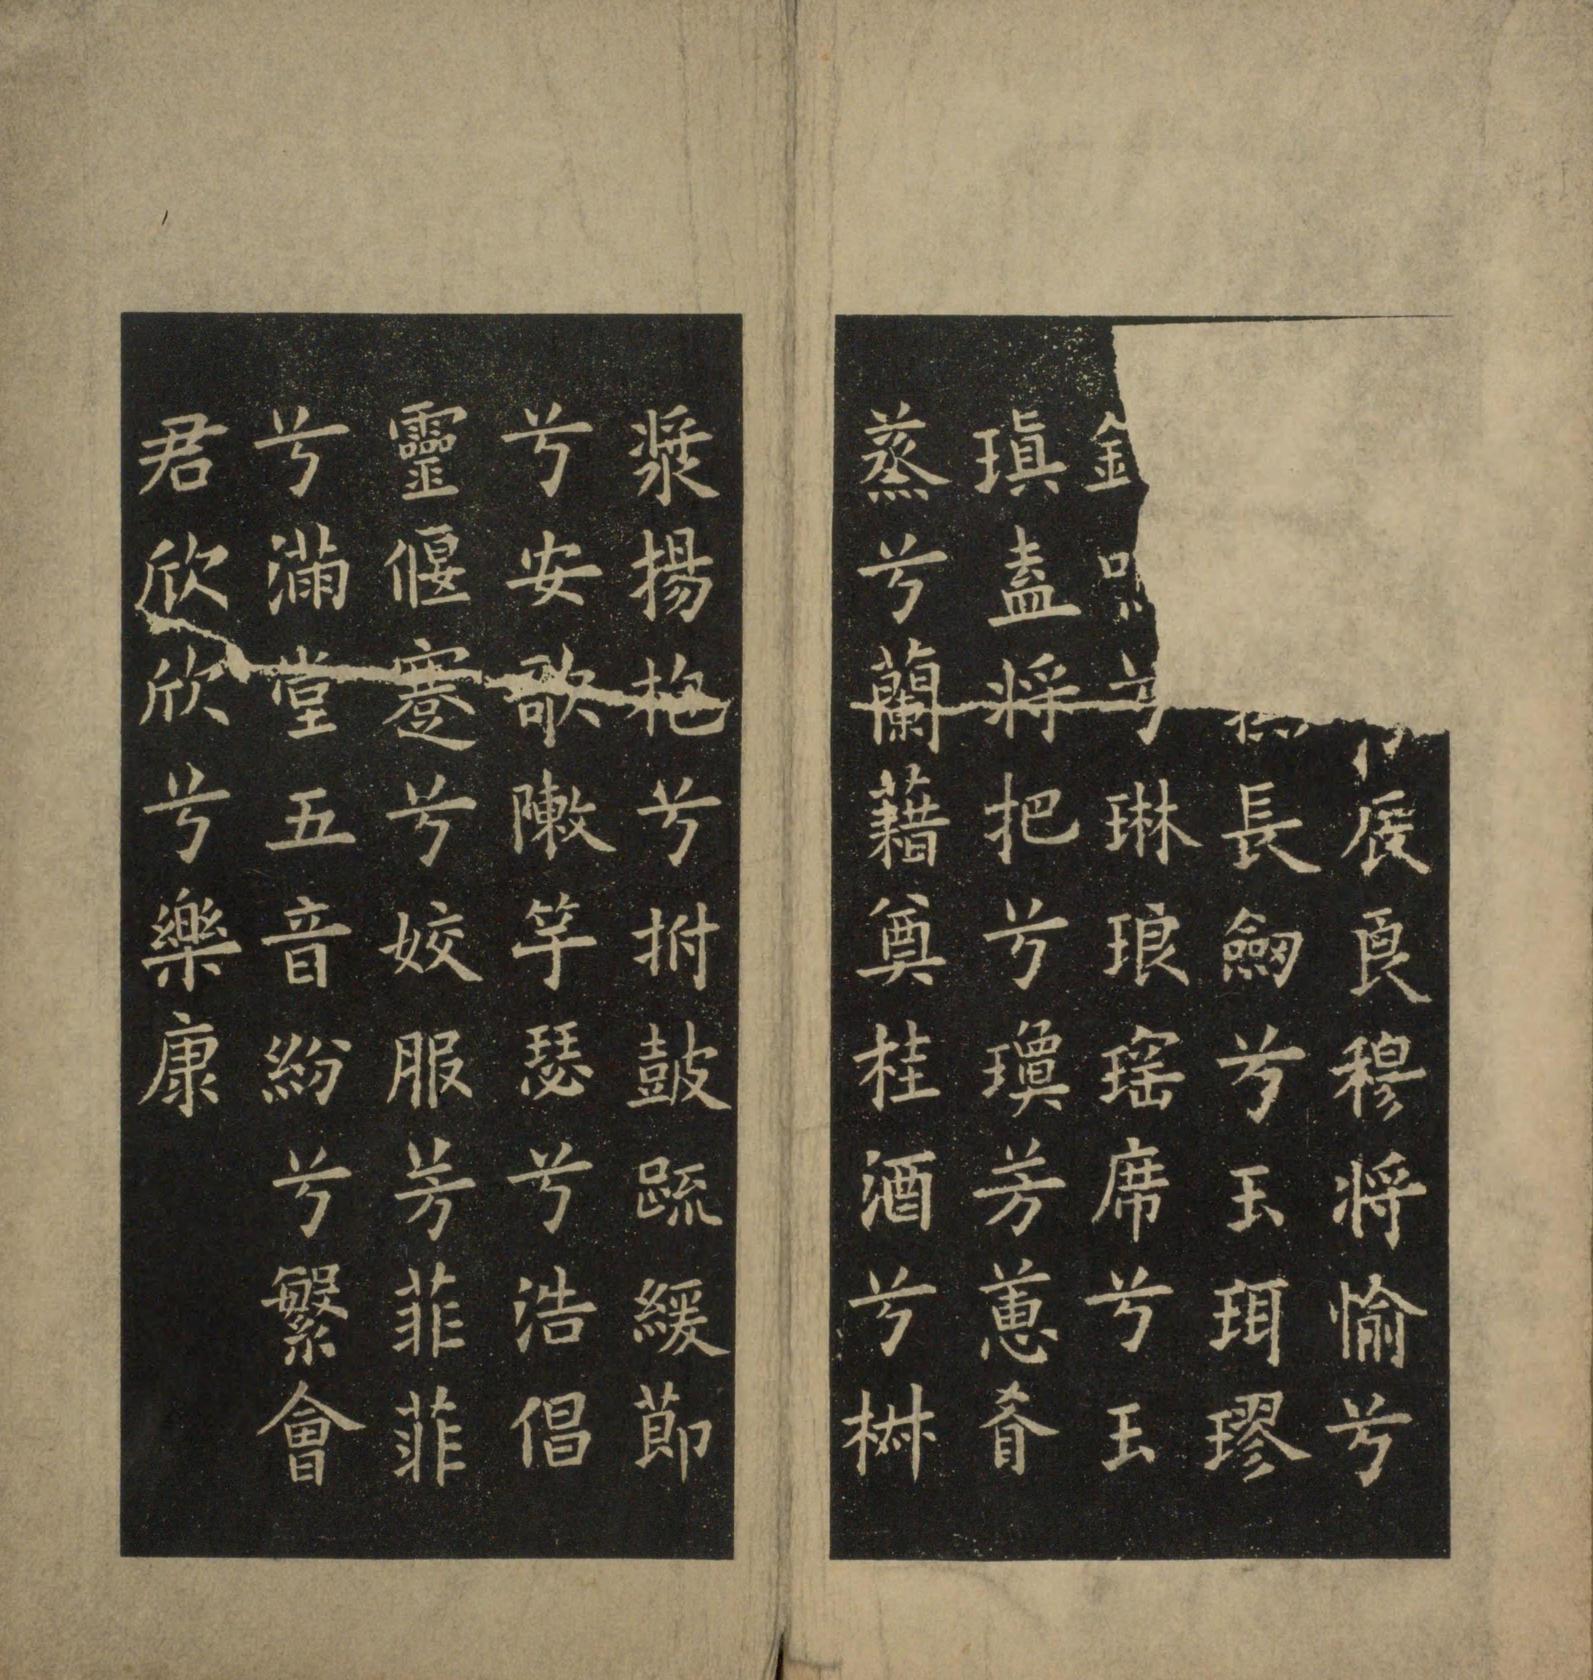 辰良穆将愉兮
長劒兮玉珥璆
鳴兮琳琅瑤席兮玉
瑱盍将把兮瓊芳蕙肴
蒸兮蘭藉奠桂酒兮椒
漿揚枹兮拊鼓疏緩節
兮安歌敶竽瑟兮浩倡
靈偃蹇兮姣服芳菲菲
兮滿堂五音紛兮繁會
君欣欣兮樂康